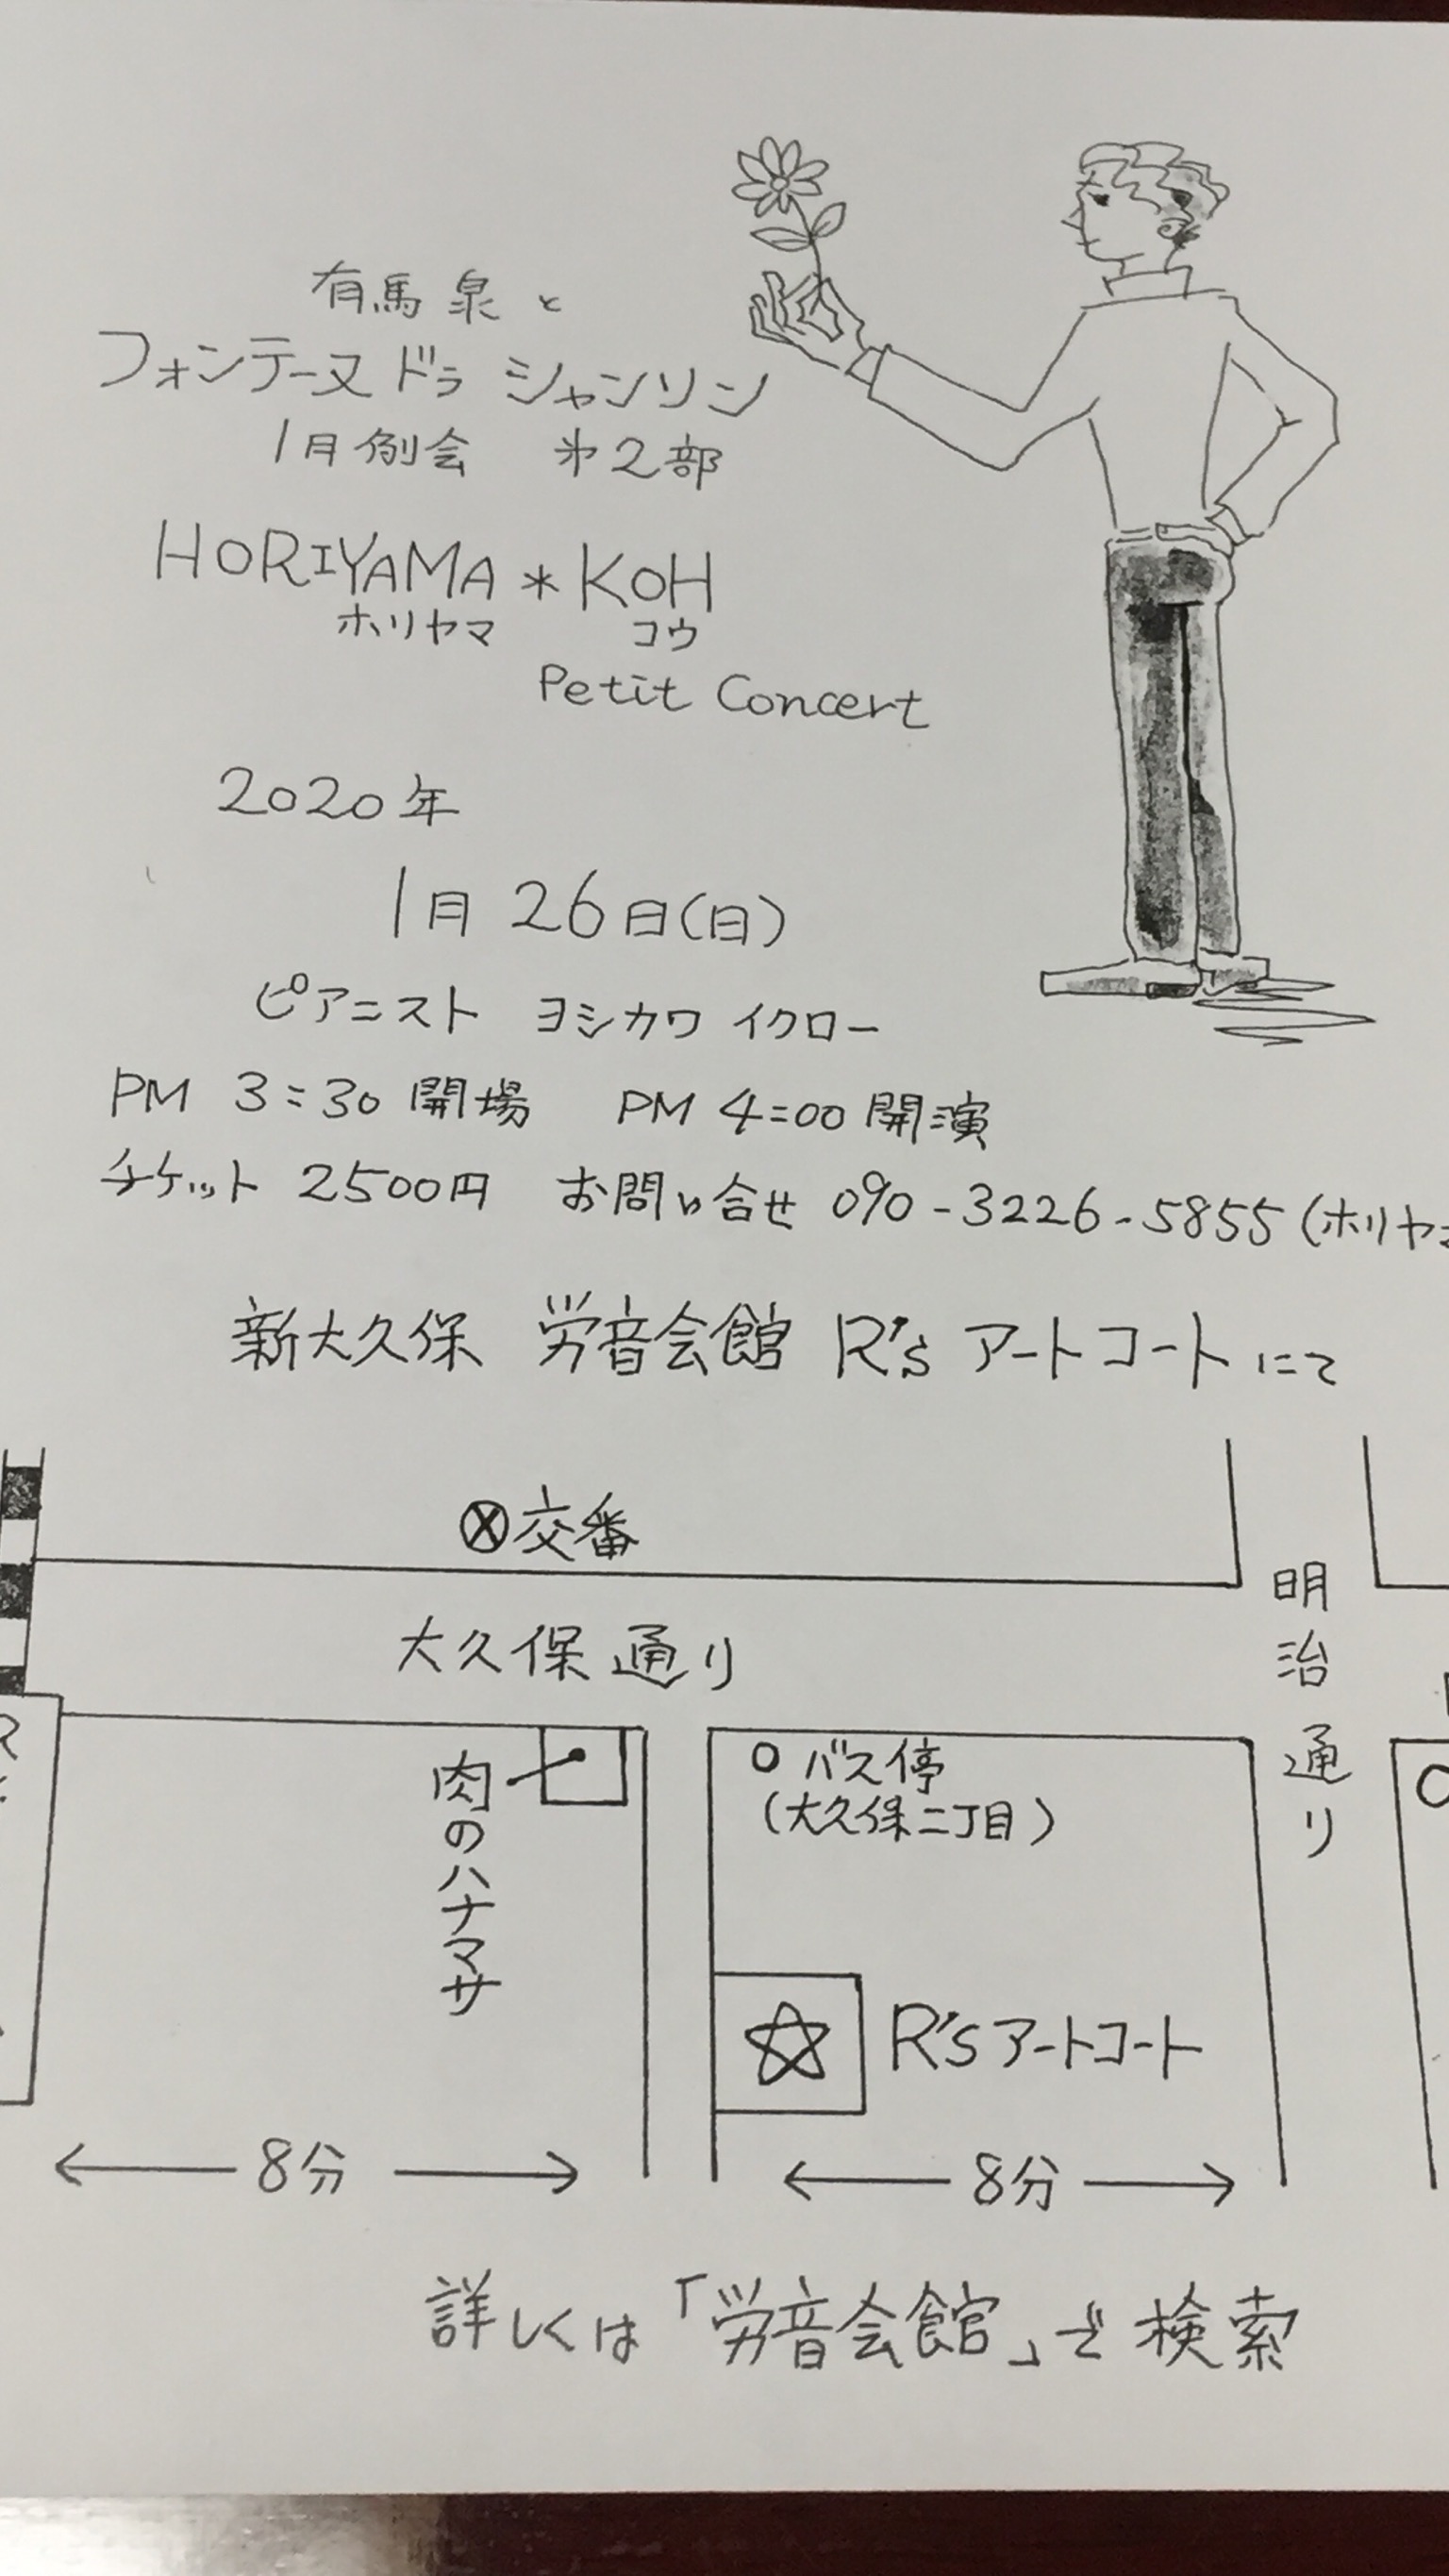 有馬泉と
フォンテーヌ ドゥラ シャンソン
1月例会 第2部
HORIYAMA * KOH
ホリヤマ コウ
Petit Concert
2020年
1月26日(日)
ピアニスト ヨシカワ イクロー
PM 3:30 開場 PM 4:00 開演
チケット 2500円 お問い合せ 090-3226-5855 (ホリヤマ
新大久保 労音会館 R'sアートコートにて
交番
大久保通り
明治通り
肉のハナマサ
バス停
(大久保二丁目)
R'sアートコート
8分
8分
詳しくは「労音会館」で検索